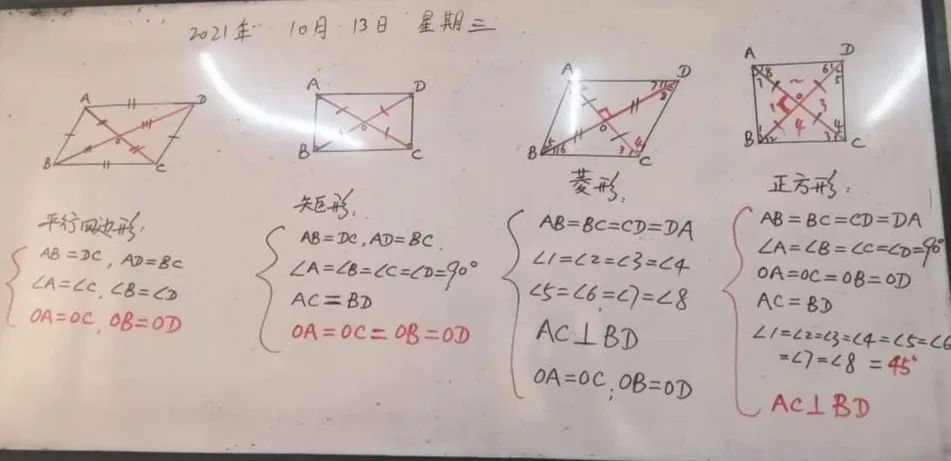 2021年 10月 13日 星期三
A D
B C
O
平行四边形:
AB=DC, AD=BC
∠A=∠C, ∠B=∠D
OA=OC, OB=OD
A D
B C
O
矩形:
AB=DC, AD=BC.
∠A=∠B=∠C=∠D=90°
AC=BD
OA=OC=OB=OD
A D
B C
O
5 6 3 4 7 8
菱形:
AB=BC=CD=DA
∠1=∠2=∠3=∠4
∠5=∠6=∠7=∠8
AC⊥BD
OA=OC; OB=OD
A D
7 8 6 5
O
1 3
4
1 2 3 4
B C
正方形:
AB=BC=CD=DA
∠A=∠B=∠C=∠D=90°
OA=OC=OB=OD
AC=BD
∠1=∠2=∠3=∠4=∠5=∠6
=∠7=∠8=45°
AC⊥BD